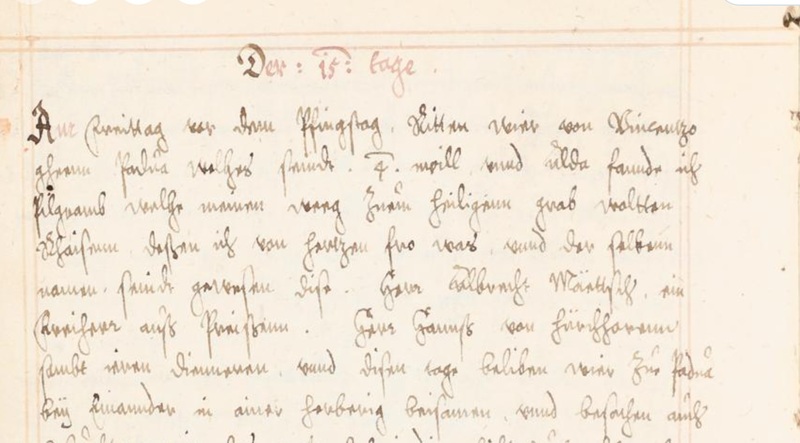 Der : 15 : tage .
Am Freittag vor dem Pfingstag, Ritten wier von Vincentzo
gheen Padua welhes seindt . 4 . meill, vnnd allda fannde ich
pilgramb welhe meinen weeg zuem heiligenn grab woltten
Rhaisenn, deßen ich von hertzen fro was, vnnd der selbenn
namen seindt gewesen dise . Herr Albrecht ein
Freiherr auß Preißenn . Herr Hannß von
sambt ieren dienneren, vnnd disen tage beliben wier zue Padua
bey Einannder in ainer herberig beisamen, vnnd besachen auch